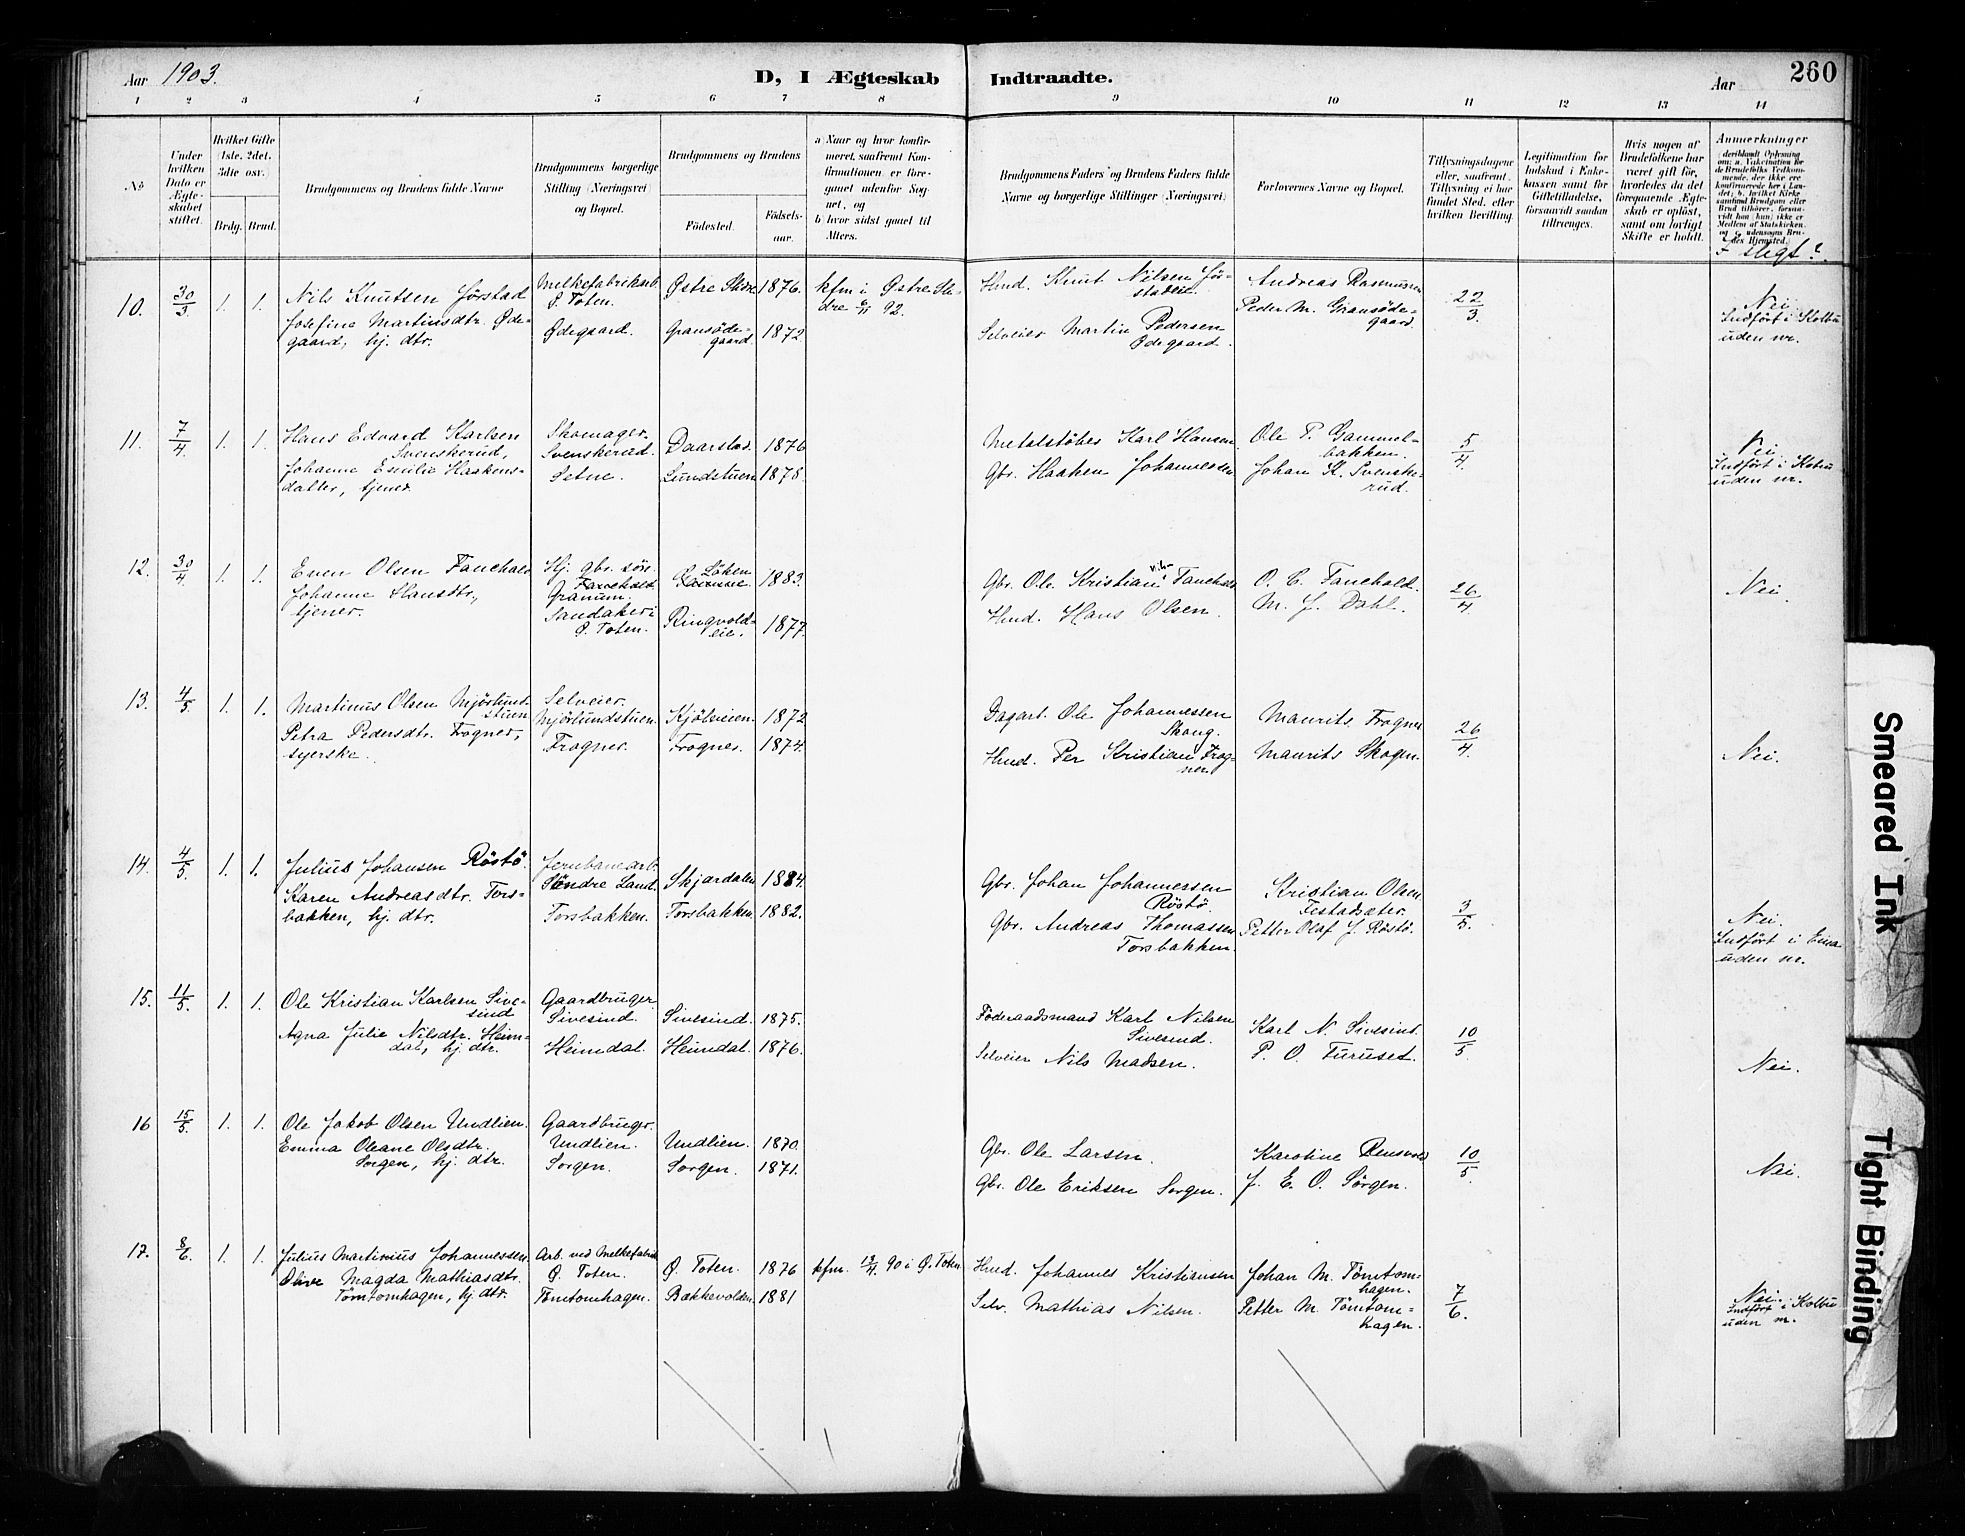 Aar 1903. D, I Ægteskab Indtraadte. Aar 260
1 2 3 4 5 6 7 8 9 10 11 12 13 14
No
Under hvilken Dato er Ægteskabet stiftet.
Hvilket Gifte (1ste, 2det, 3die osv.).
Brdg. Brud.
Brudgommens og Brudens fulde Navne
Brudgommens borgerlige Stilling (Næringsvei) og Bopæl.
Brudgommens og Brudens
Födested. Födsels-aar.
a) Naar og hvor konfirmeret, saafremt Konfirmationen er foregaaet udenfor Sognet, og
b) hvor sidst gaaet til Alters.
Brudgommens Faders og Brudens Faders fulde Navne og borgerlige Stillinger (Næringsvei)
Forlovernes Navne og Bopæl.
Tillysningsdagene eller, saafremt Tillysning ei har fundet Sted, efter hvilken Bevilling.
Legitimation for Indskud i Enkekassen samt for Giftetilladelse, forsaavidt saadan tiltrænges.
Hvis nogen af Brudefolkene har været gift för, hvorledes da det foregaaende Ægteskab er oplöst, samt om lovligt Skifte er holdt.
Anmerkninger
I slegt?
10. 30/3 1. 1. Nils Knutsen Jörstad Melkefabrikarb. Östre Slidre 1876. kfm i Östre Sli- Hmd. Knut Nilsen Jör- Andreas Rasmussen 22/3. Nei.
Ö. Toten. dre 6/11 92. stadeie.
Josefine Martinsdtr. Öde- Ödegaard. Gransöde- 1872. Selveier Martin Pedersen Peder M. Gransöde- Indfört i Kolbu
gaard, hj. dtr. gaard. Ödegaard. gaard. uden nr.
11. 7/4 1. 1. Hans Edvard Karlsen Skomager. Daarstad. 1876 Metalstöber Karl Hansen Ole P. Gammel- 5/4. Nei
Svenskerud, Svenskerud. bakken.
Johanne Emilie Haakens- Setne. Lundstuen 1878. Gbr. Haaken Johannessen Johan K. Svenske- Indfört i Kolbu
datter, tjener. rud. uden nr.
12. 30/4. 1. 1. Even Olsen Fauchald Hj. gbr. sön. Löken 1883. Gbr. Ole Kristian Fauchald O. C. Fauchald. 26/4 Nei.
Fauchald
Granum.
Johanne Hansdtr., Sandaker i Ringvold- 1877. Hmd. Hans Olsen. M. J. Dahl.
tjener. Ö. Toten. eie.
13. 4/5 1. 1. Martinus Olsen Mjörlund- Selveier. Kjölveien. 1872 Dagarb. Ole Johannessen Maurits Frogner 26/4.
stuen Mjörlundstuen. Skaug.
Petra Pedersdtr. Frogner, Frogner. Frogner. 1874. Hmd. Per Kristian Frog- Maurits Skogen. Nei.
syerske. ner.
14. 4/5. 1. 1. Julius Johansen Röstö. Jernbanearb. Skjærdalen 1884. Gbr. Johan Johannessen Kristian Olsen 3/5.
Söndre Land. Röstö. Festadsæter.
Karen Andreasdtr. Fors- Forsbakken. Forsbakken. 1882. Gbr. Andreas Thomassen Petter Olaf J. Röstö. Nei.
bakken, hj. dtr. Forsbakken. Indfört i Eina uden nr.
15. 11/5. 1. 1. Ole Kristian Karlsen Sive- Gaardbruger Sivesind. 1875. Föderaadsmand Karl Nilsen Karl N. Sivesind. 10/5.
sind Sivesind. Sivesind.
Agna Julie Nilsdtr. Heim- Heimdal. Heimdal. 1876. Selveier Nils Madsen. P. O. Furuset. Nei.
dal, hj. dtr.
16 15/5. 1. 1. Ole Jakob Olsen Undlien. Gaardbruger. Undlien. 1870. Gbr. Ole Larsen. Karoline 10/5.
Undlien.
Emma Oleane Olsdtr. Sorgen. Sorgen. 1871. Gbr. Ole Eriksen Sorgen. J. E. O. Sörgen. Nei.
Sorgen, hj. dtr.
17. 8/6. 1. 1. Julius Martinius Johannessen. Arb. ved Melkefabrik Ö. Toten. 1876 kfm. 13/4. 90 i Ö. Toten. Hmd. Johannes Kristiansen Johan M. Tömtom- 7/6.
Ö. Toten. hagen.
Olive Magda Mathiasdtr. Tömtomhagen. Bakkevolden 1881 Selv. Mathias Nilsen. Petter M. Tömtom- Nei.
Tömtomhagen, hj. dtr. hagen. Indfört i Kolbu uden nr.
Smeared Ink
Tight Binding